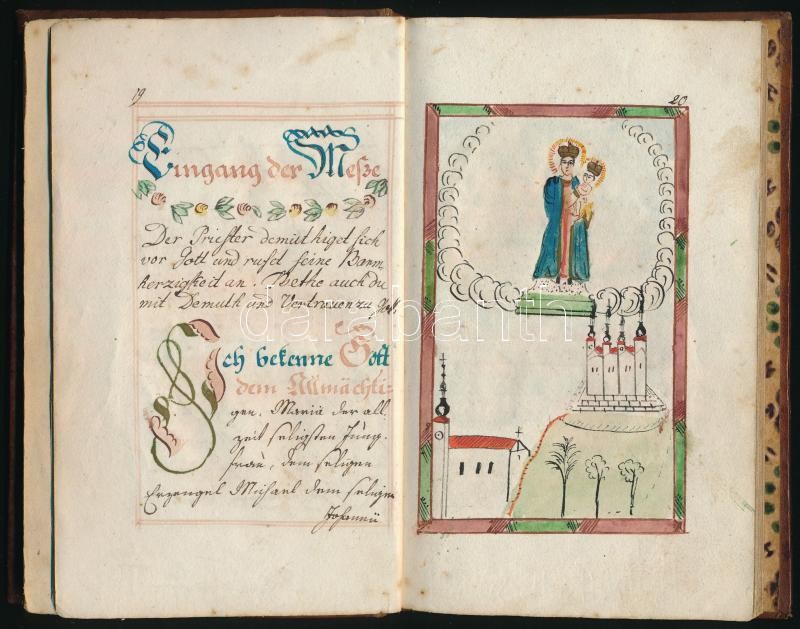 19
Eingang der Meßze
Der Priester demüthiget sich
vor Gott und rufet seine Barm
herzigkeit an. Bethe auch du
mit Demuth und Vertrauen zu Gott.
Ich bekenne Gott
dem Allmächti-
gen, Mariä der all
zeit seligsten Jung-
frau, dem seligen
Erzengel Michael dem seligen
Johanni
20
darabanth